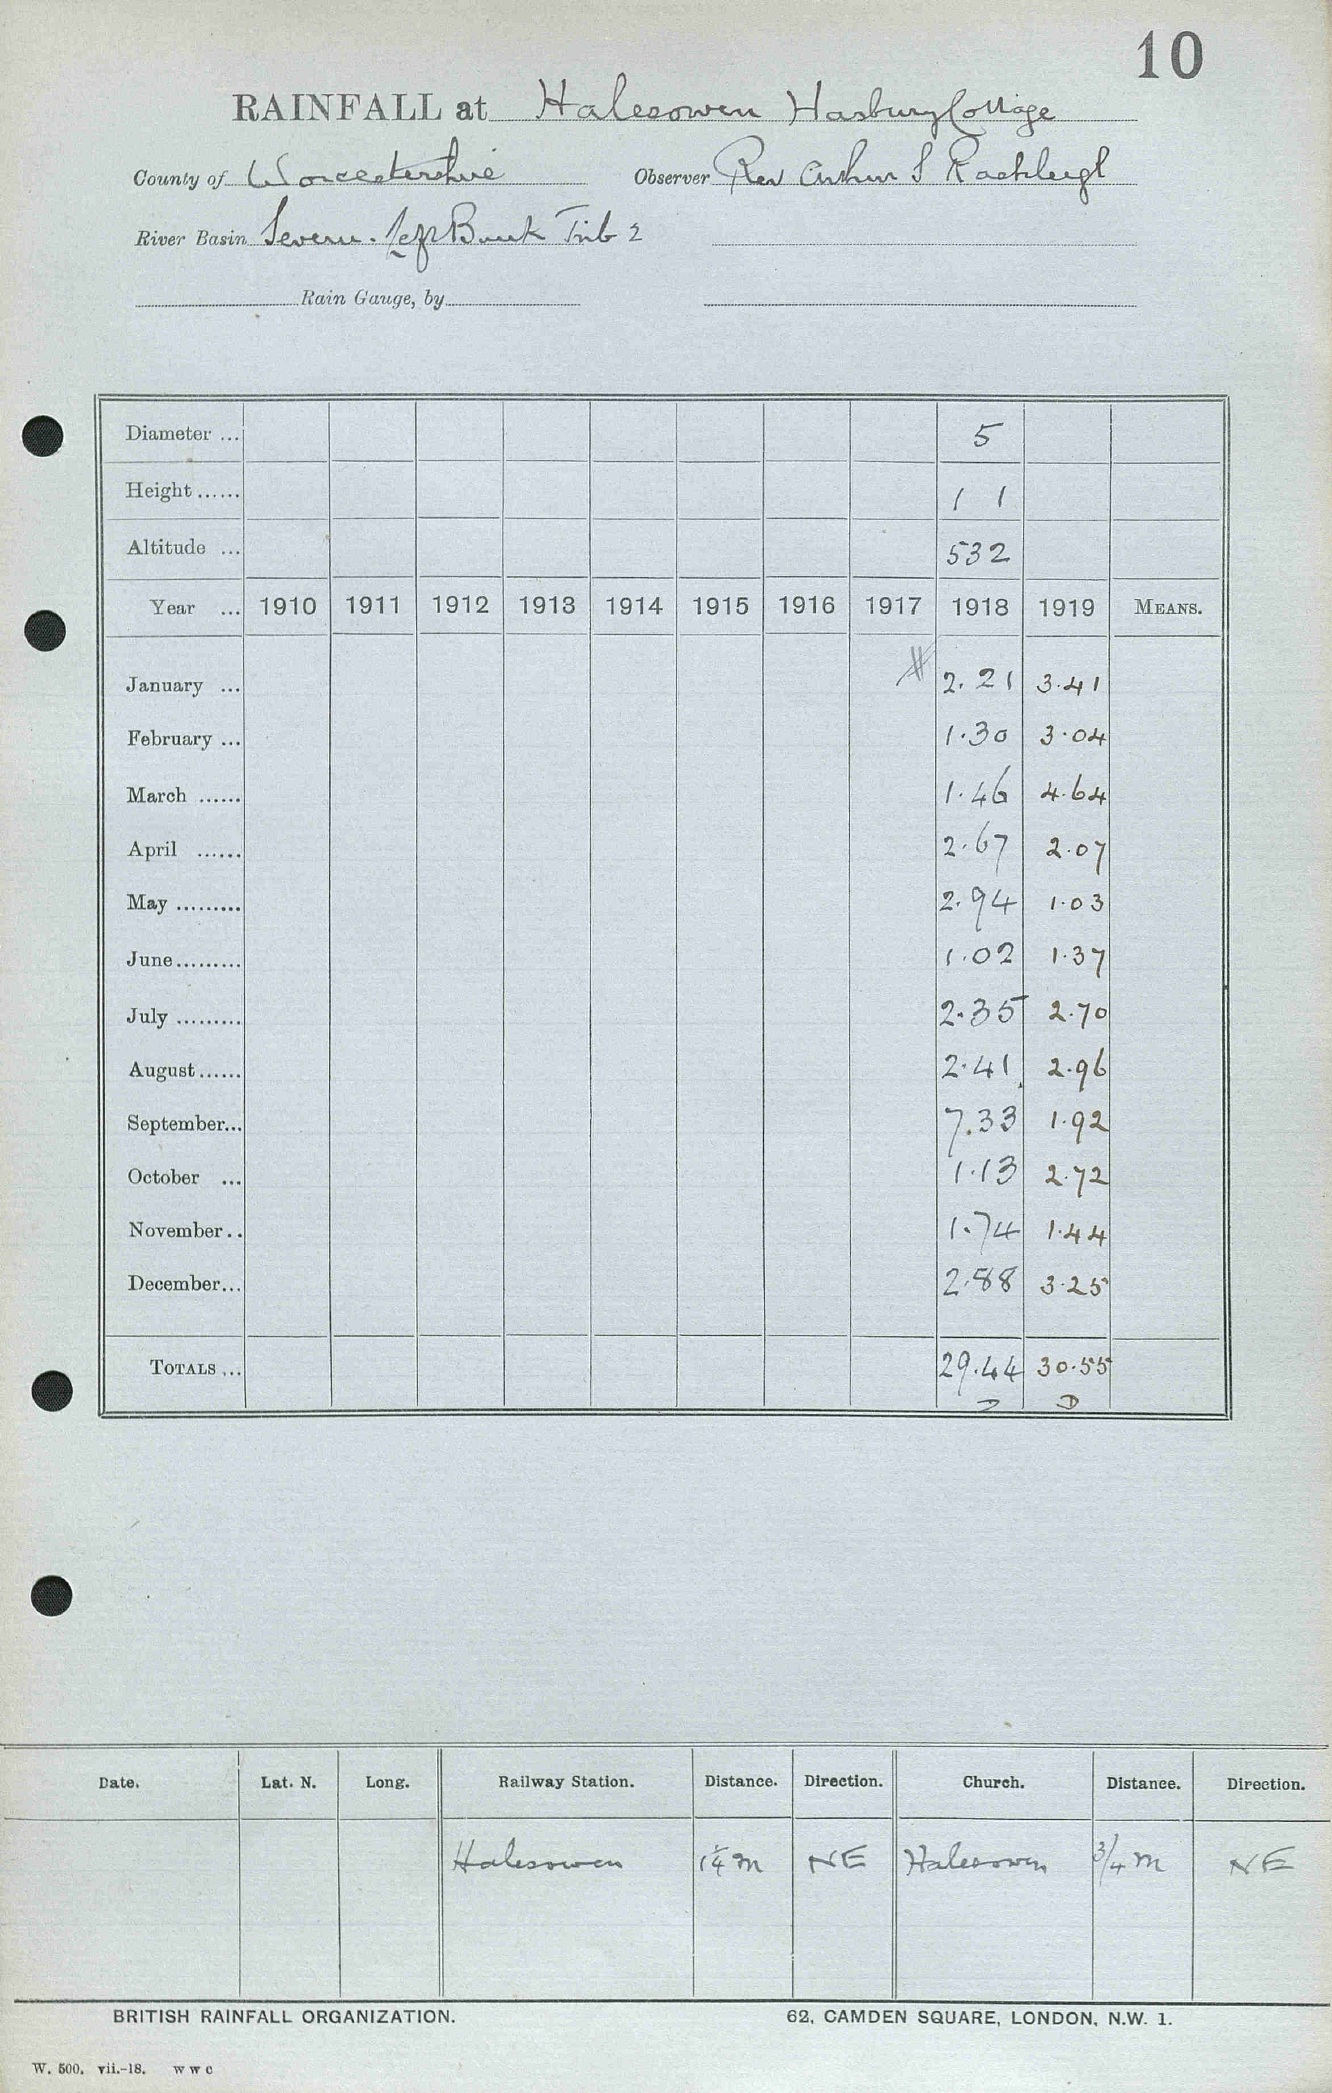 10
RAINFALL at Halesowen Hasbury Cottage
County of Worcestershire Observer Rev Arthur S Rashleigh
River Basin Severn. Left Bank Trib 2
Rain Gauge, by
Diameter ... 5
Height ...... 1 1
Altitude ... 532
Year ... 1910 1911 1912 1913 1914 1915 1916 1917 1918 1919 MEANS.
January ... 2.21 3.41
February ... 1.30 3.04
March ...... 1.46 4.64
April ...... 2.67 2.07
May ......... 2.94 1.03
June ......... 1.02 1.37
July ......... 2.35 2.70
August ...... 2.41 2.96
September... 7.33 1.92
October ... 1.13 2.72
November .. 1.74 1.44
December... 2.88 3.25
TOTALS ... 29.44 30.55
D
Date. Lat. N. Long. Railway Station. Distance. Direction. Church. Distance. Direction.
Halesowen 1¼ m NE Halesowen 3/4 m NE
BRITISH RAINFALL ORGANIZATION. 62, CAMDEN SQUARE, LONDON, N.W. 1.
W. 500. vii.-18. W W C